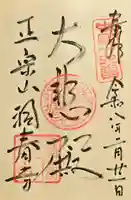 奉拝
令和八年二月廿一日
大悲殿
正宗山洞春寺